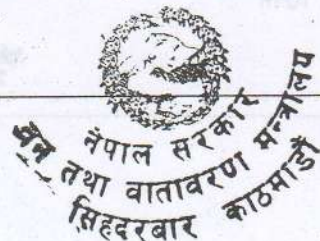 नेपाल सरकार
वन तथा वातावरण मन्त्रालय
सिंहदरबार काठमाडौं